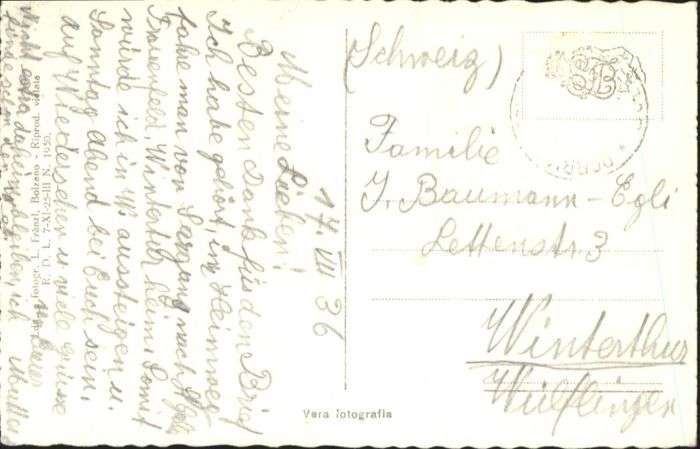 17. VIII 36
Meine Lieben!
Besten Dank für den Brief
Ich habe gehört, im Heimweg
fahre man von Sargans nach
Frauenfeld, Winterthur heim. Somit
würde ich in W. aussteigen u.
Sonntag Abend bei Euch sein.
Auf Wiedersehen u. viele Grüsse
Nicht extra daheim bleiben, ich
Ediz. fotogr. L. Fränzl, Bolzano - Riprod. vietata
F. D. L. 7-XI-25-III N. 1950.
Vera fotografia
(Schweiz)
Familie
J. Baumann-Egli
Lettenstr. 3
Winterthur
Wülflingen